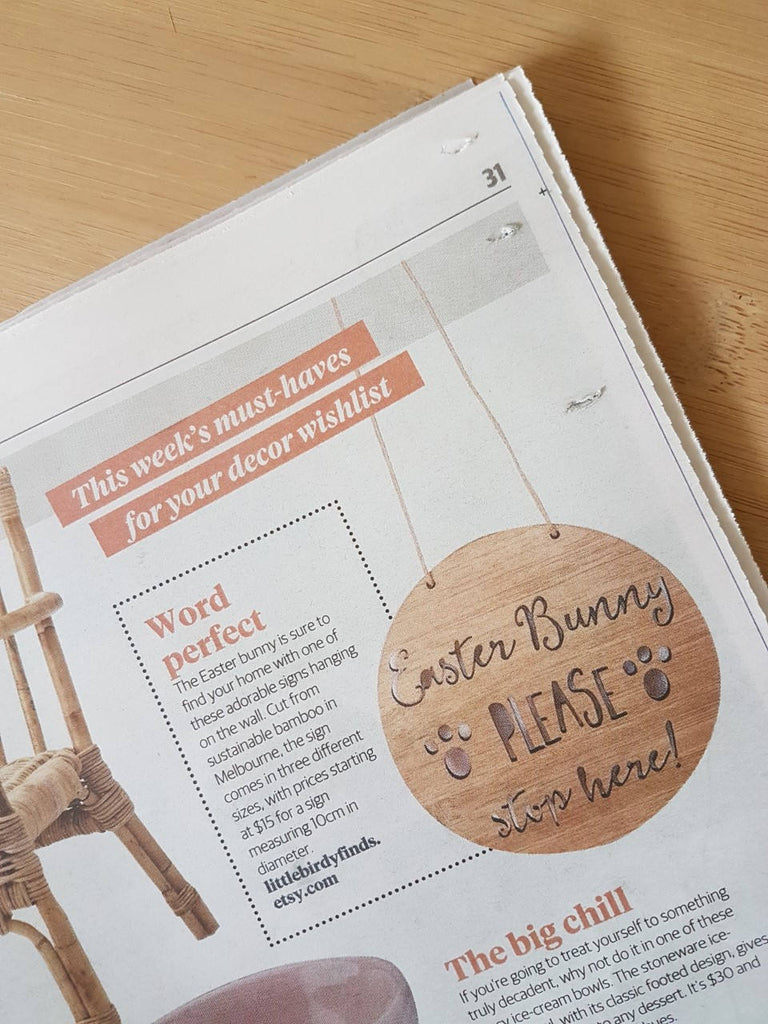 31
This week's must-haves
for your decor wishlist
Word
perfect
The Easter bunny is sure to
find your home with one of
these adorable signs hanging
on the wall. Cut from
sustainable bamboo in
Melbourne, the sign
comes in three different
sizes, with prices starting
at $15 for a sign
measuring 10cm in
diameter.
littlebirdyfinds.
etsy.com
Easter Bunny
PLEASE
stop here!
The big chill
If you're going to treat yourself to something
truly decadent, why not do it in one of these
ice-cream bowls. The stoneware ice-
with its classic footed design, gives
to any dessert. It's $30 and